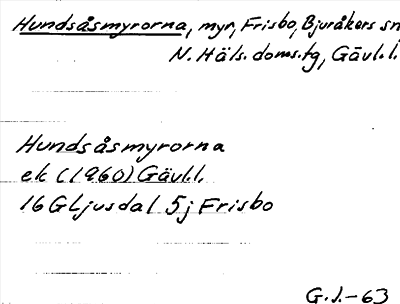 Hundsåsmyrorna, myr, Frisbo, Bjuråkers sn
N. Häls. doms.tg, Gävl.l.
Hundsåsmyrorna
ek (1960) Gävl.l.
16G Ljusdal 5j Frisbo
G.J.-63